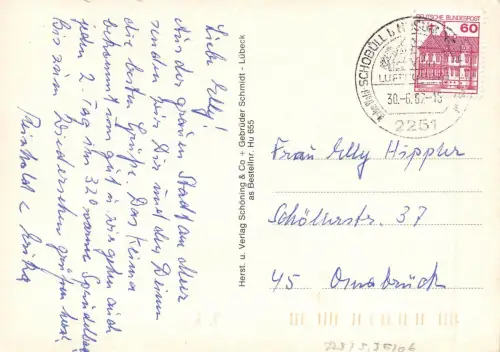 Liebe Elly!
Aus der grauen Stadt am Meer
senden wir Dir und den Deinen
die besten Grüße. Das Klima
bekommt uns gut u. wir gehen auch
jeden 2. Tag ins 32° warme Sprudelbad
Bis zum Wiedersehen grüßen herzl.
Reinhold u. Erika
Herst. u. Verlag Schöning & Co + Gebrüder Schmidt - Lübeck
as Bestellnr. Hu 655
SCHOBÜLL b HUSUM
30.-6.87-15
2251
DEUTSCHE BUNDESPOST
60
Frau Elly Hippler
Schölerstr. 37
45 Osnabrück